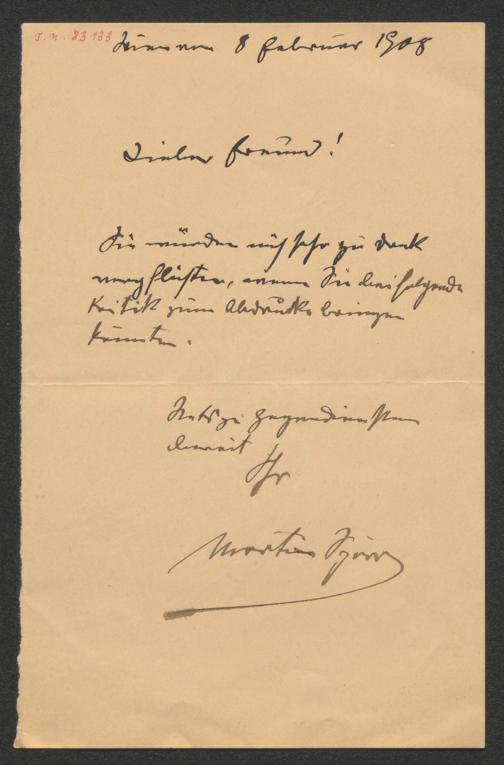 J. N. 83133
Wien am 8 Februar 1908
Lieber Freund!
Sie würden mich sehr zu Dank
verpflichten, wenn Sie beifolgende
Kritik zum Abdrucke bringen
könnten.
Stets zu Gegendiensten
bereit
Ihr
Martin Spörr